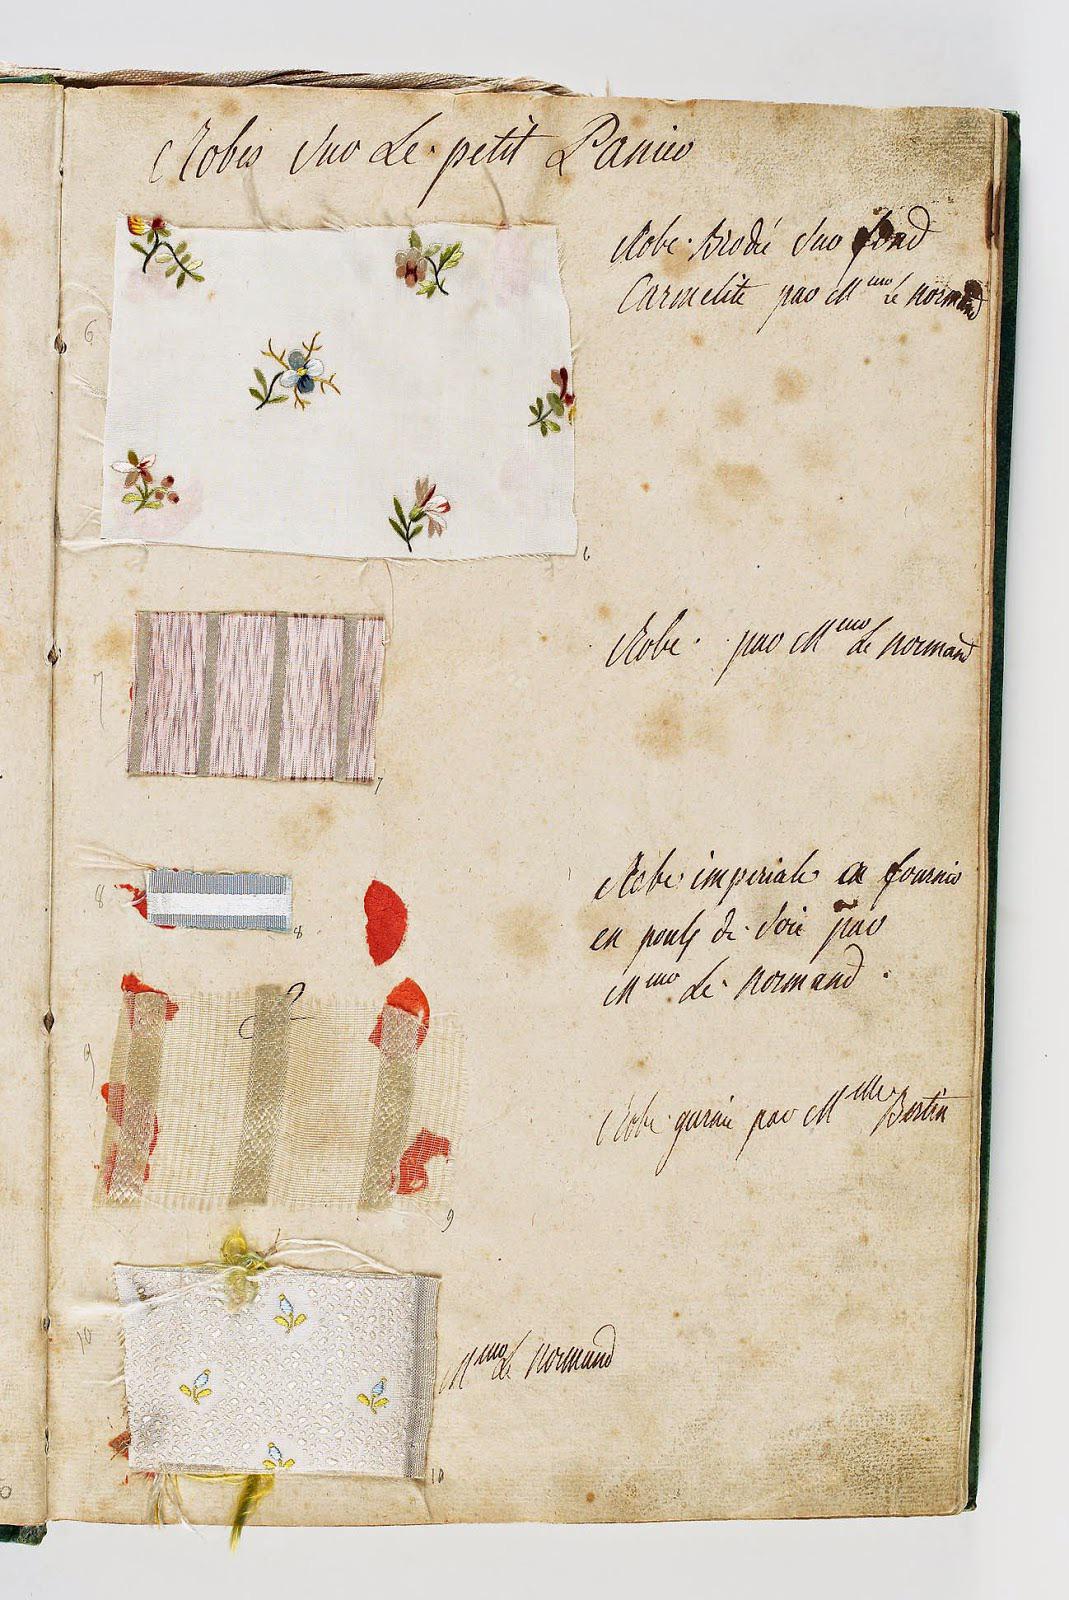 Robes sur Le petit Panier
Robe Brodé sur fond
Carmelite par Mme Le normand
6
6
Robe par Mme Le normand
7
7
Robe imperiale a fournir
en pouls de soie par
Mme Le normand
8
8
Robe garnie par Melle Bertin
9
9
Mme Le normand
10
10